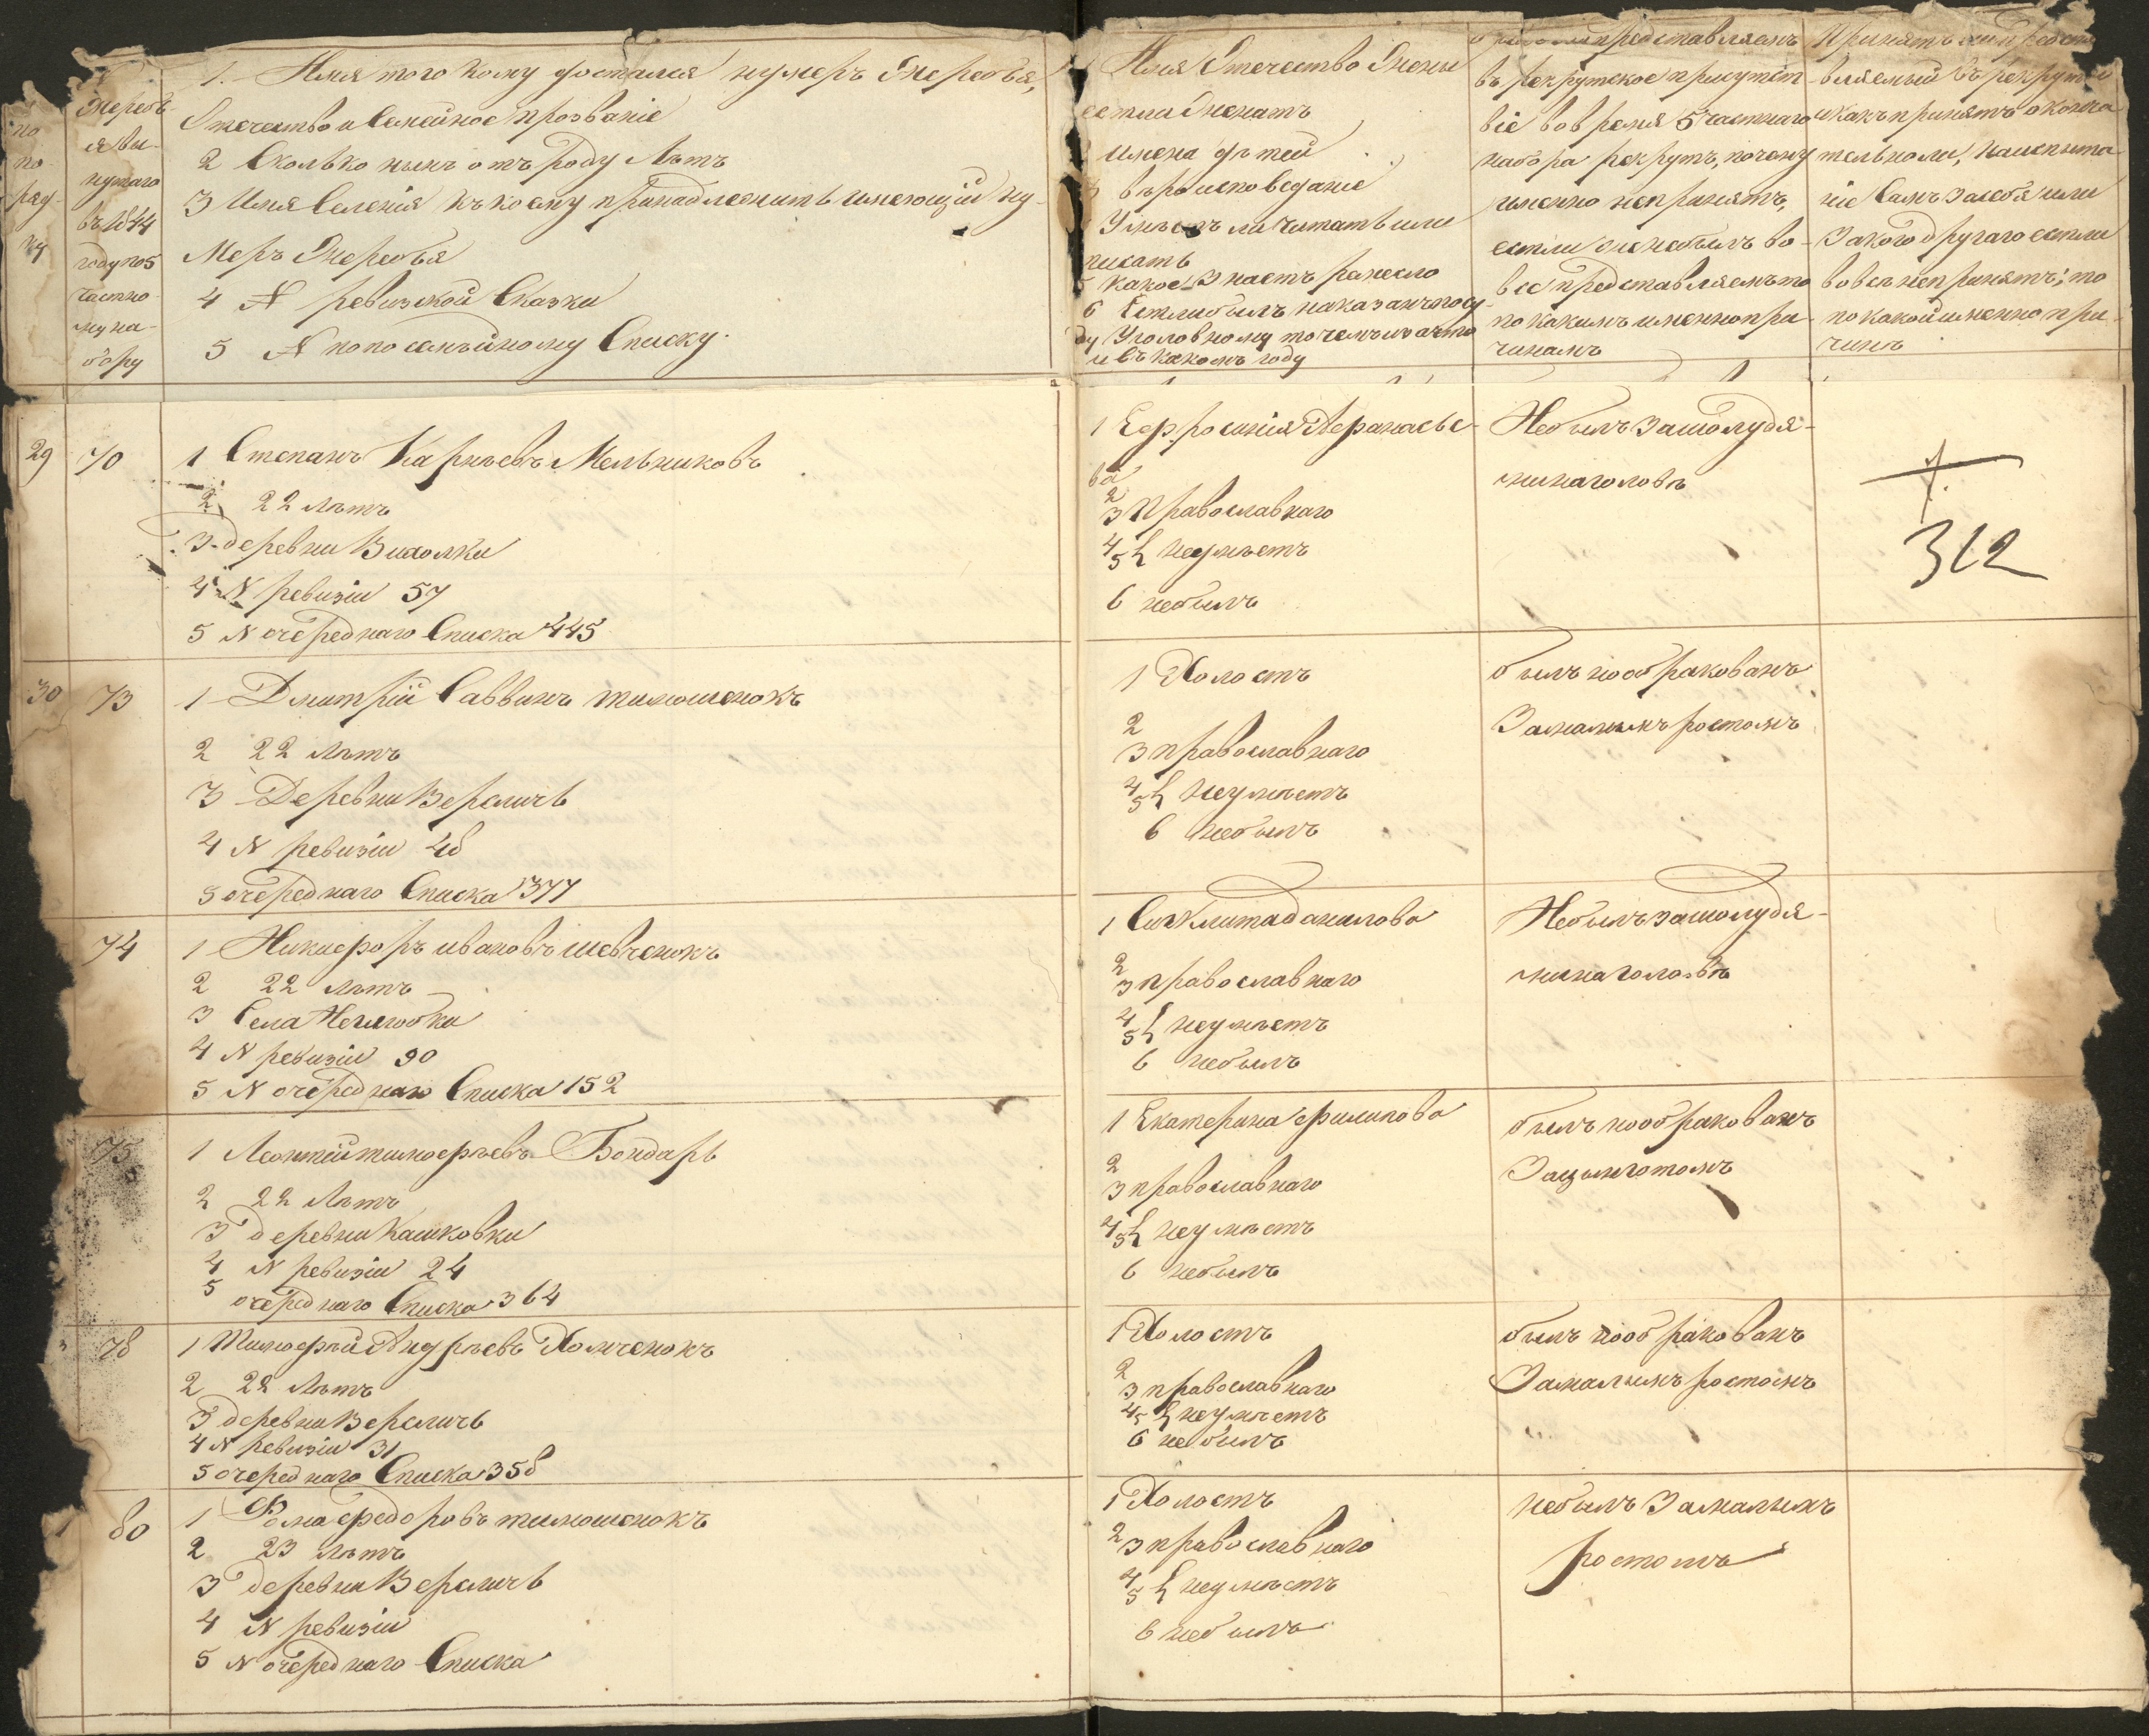 №
по
по
ряд
ку
жеребъ
я вы
нутаго
въ 1844
году по 5
частно
му на
бору
1. Имя того кому достался нумеръ жеребья,
Отечество и Семейное прозваніе
2 Сколько нынѣ отъ роду Лѣтъ
3 Имя Селенія къ коему принадлежитъ имеющій ну
меръ Жеребья
4 № ревизской Сказки
5 № по посемѣйному Списку.
Имя Отечество Жены
естли женатъ
имена дѣтей
вѣроисповеданіе
Умѣетъ ли читать или
писать
5 какое знаетъ ремесло
6 Естли былъ наказанъ по су
ду Уголовному то чемъ и за что
и въ какомъ году
представляемъ
въ рекрутское присутст
віе во время 5 частнаго
набора рекрутъ, почему
именно непринятъ,
естли же небылъ во
все представляемъ то
по какимъ именно при
чинамъ
Принятъ ли предста
вляемый въ рекруты
и какъ принятъ оконча
тельно ли, на испыта
ніе Самъ за себя или
За кого другаго естли
вовсе непринятъ, то
по какой именно при
чинѣ
29 70
1 Степанъ Карпѣевъ Мельниковъ
2 22 Лѣтъ
3 деревни Висолки
4 № ревизіи 57
5 № очереднаго Списка 445
1 Ефросинія Афанасье
ва
2
3 Православнаго
4
5 неумѣетъ
6 небылъ
Небылъ За шолудя
ми на головѣ
312
30 73
1 Дмитрій Саввинъ тимошенокъ
2 22 Лѣтъ
3 Деревни Вересичь
4 № ревизіи 48
5 очереднаго Списка 377
1 Холостъ
2
3 православнаго
4
5 неумѣетъ
6 небылъ
былъ но обракованъ
За малымъ ростомъ
74
1 Никифоръ ивановъ шевченокъ
2 22 Лѣтъ
3 Села
4 № ревизіи 90
5 № очереднаго Списка 152
1 Синклита данилова
2
3 православнаго
4
5 неумѣетъ
6 небылъ
Небылъ за шолудя
ми на головѣ
75
1 Леонтій тимофѣевъ Бондарь
2 22 Лѣтъ
3 деревни Кашковки
4 № ревизіи 24
5 очереднаго Списка 364
1 Екатерина филипова
2
3 православнаго
4
5 неумѣетъ
6 небылъ
былъ но обракованъ
За цынготомъ
78
1 Тимофѣй Андрѣевъ Хомченокъ
2 22 Лѣтъ
3 деревни Вересичь
4 № ревизіи 31
5 очереднаго Списка 358
1 Холостъ
2
3 православнаго
4
5 неумѣетъ
6 небылъ
былъ но обракованъ
За малымъ ростомъ
80
1 Фома федоровъ тимошенокъ
2 23 Лѣтъ
3 деревни Вересичь
4 № ревизіи
5 № очереднаго Списка
1 Холостъ
2
3 православнаго
4
5 неумѣетъ
6 небылъ
небылъ За малымъ
ростомъ